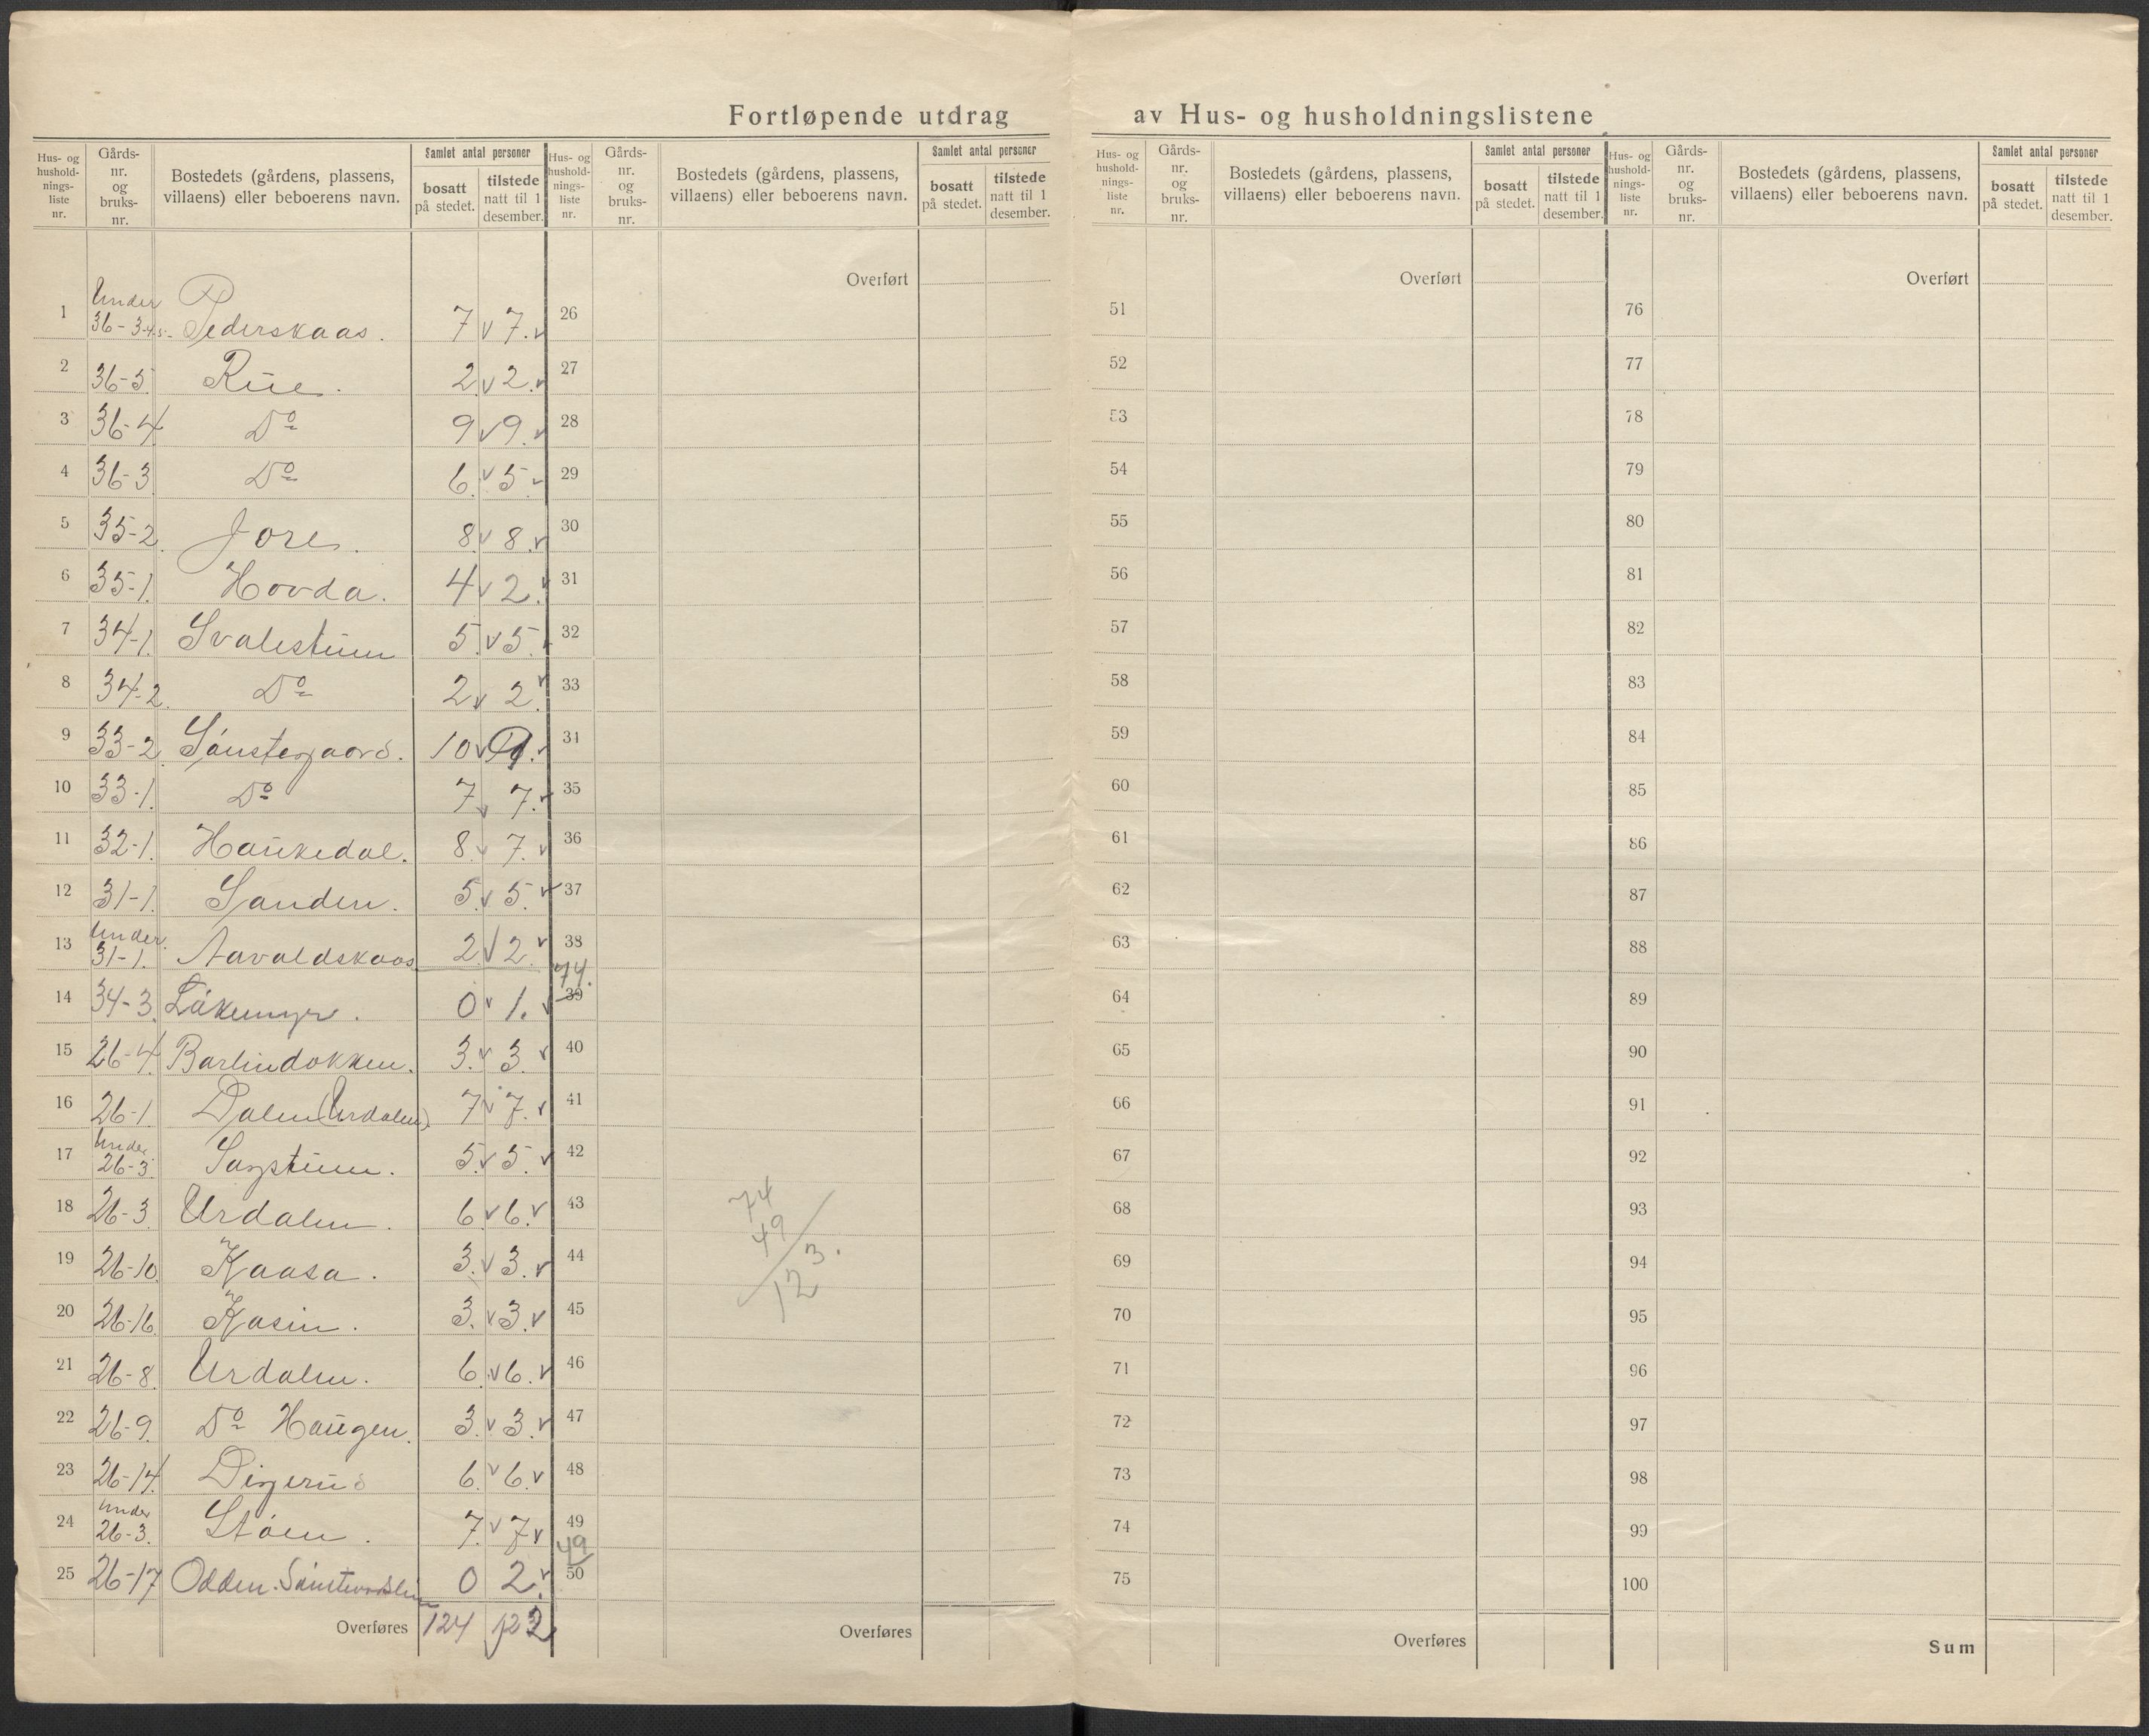 Fortløpende utdrag av Hus- og husholdningslistene
Hus- og husholdnings-liste nr. | Gårds-nr. og bruks-nr. | Bostedets (gårdens, plassens, villaens) eller beboerens navn. | Samlet antal personer | bosatt på stedet. | tilstede natt til 1 desember.
Hus- og husholdnings-liste nr. | Gårds-nr. og bruks-nr. | Bostedets (gårdens, plassens, villaens) eller beboerens navn. | Samlet antal personer | bosatt på stedet. | tilstede natt til 1 desember.
Hus- og husholdnings-liste nr. | Gårds-nr. og bruks-nr. | Bostedets (gårdens, plassens, villaens) eller beboerens navn. | Samlet antal personer | bosatt på stedet. | tilstede natt til 1 desember.
Hus- og husholdnings-liste nr. | Gårds-nr. og bruks-nr. | Bostedets (gårdens, plassens, villaens) eller beboerens navn. | Samlet antal personer | bosatt på stedet. | tilstede natt til 1 desember.
Overført Overført Overført
1 Under 36-3-4-5- Pederskaas. 7 v 7. v 26 51 76
2 36-5 Rŭe. 2 v 2. v 27 52 77
3 36-4 Do 9 v 9. v 28 53 78
4 36-3 Do 6. v 5 v 29 54 79
5 35-2. Jore. 8 v 8. v 30 55 80
6 35-1. Hovda. 4 v 2. v 31 56 81
7 34-1. Svalestŭen 5. v 5. v 32 57 82
8 34-2. Do 2 v 2. v 33 58 83
9 33-2. Sønstegaard. 10 v 9. v 34 59 84
10 33-1. Do 7 v 7. v 35 60 85
11 32-1. Haŭkedal. 8. v 7. v 36 61 86
12 31-1. Sanden. 5. v 5. v 37 62 87
13 Under. 31-1. Aavaldskaas 2 v 2. v 38 63 88
74.
14 34-3. Løkemyr. 0 v 1. v 39 64 89
15 26-4. Barlindokken. 3. v 3. v 40 65 90
16 26-1. Dalen (Urdalen) 7 v 7. v 41 66 91
17 Under 26-3. Sagstŭen. 5. v 5. v 42 67 92
18 26-3. Urdalen. 6. v 6. v 43 68 93
19 26-10. Kaasa. 3. v 3. v 44 69 94
20 26-16. Kasin. 3. v 3. v 45 70 95
21 26-8. Urdalen. 6. v 6. v 46 71 96
22 26-9. Do Haŭgen. 3. v 3. v 47 72 97
23 26-14. Digerŭd 6. v 6. v 48 73 98
24 Under 26-3. Støen. 7. v 7 v 49 74 99
49
25 26-17 Odden. 0 2. v 50 75 100
74
49
123.
Overføres 124 122 Overføres Overføres Sum